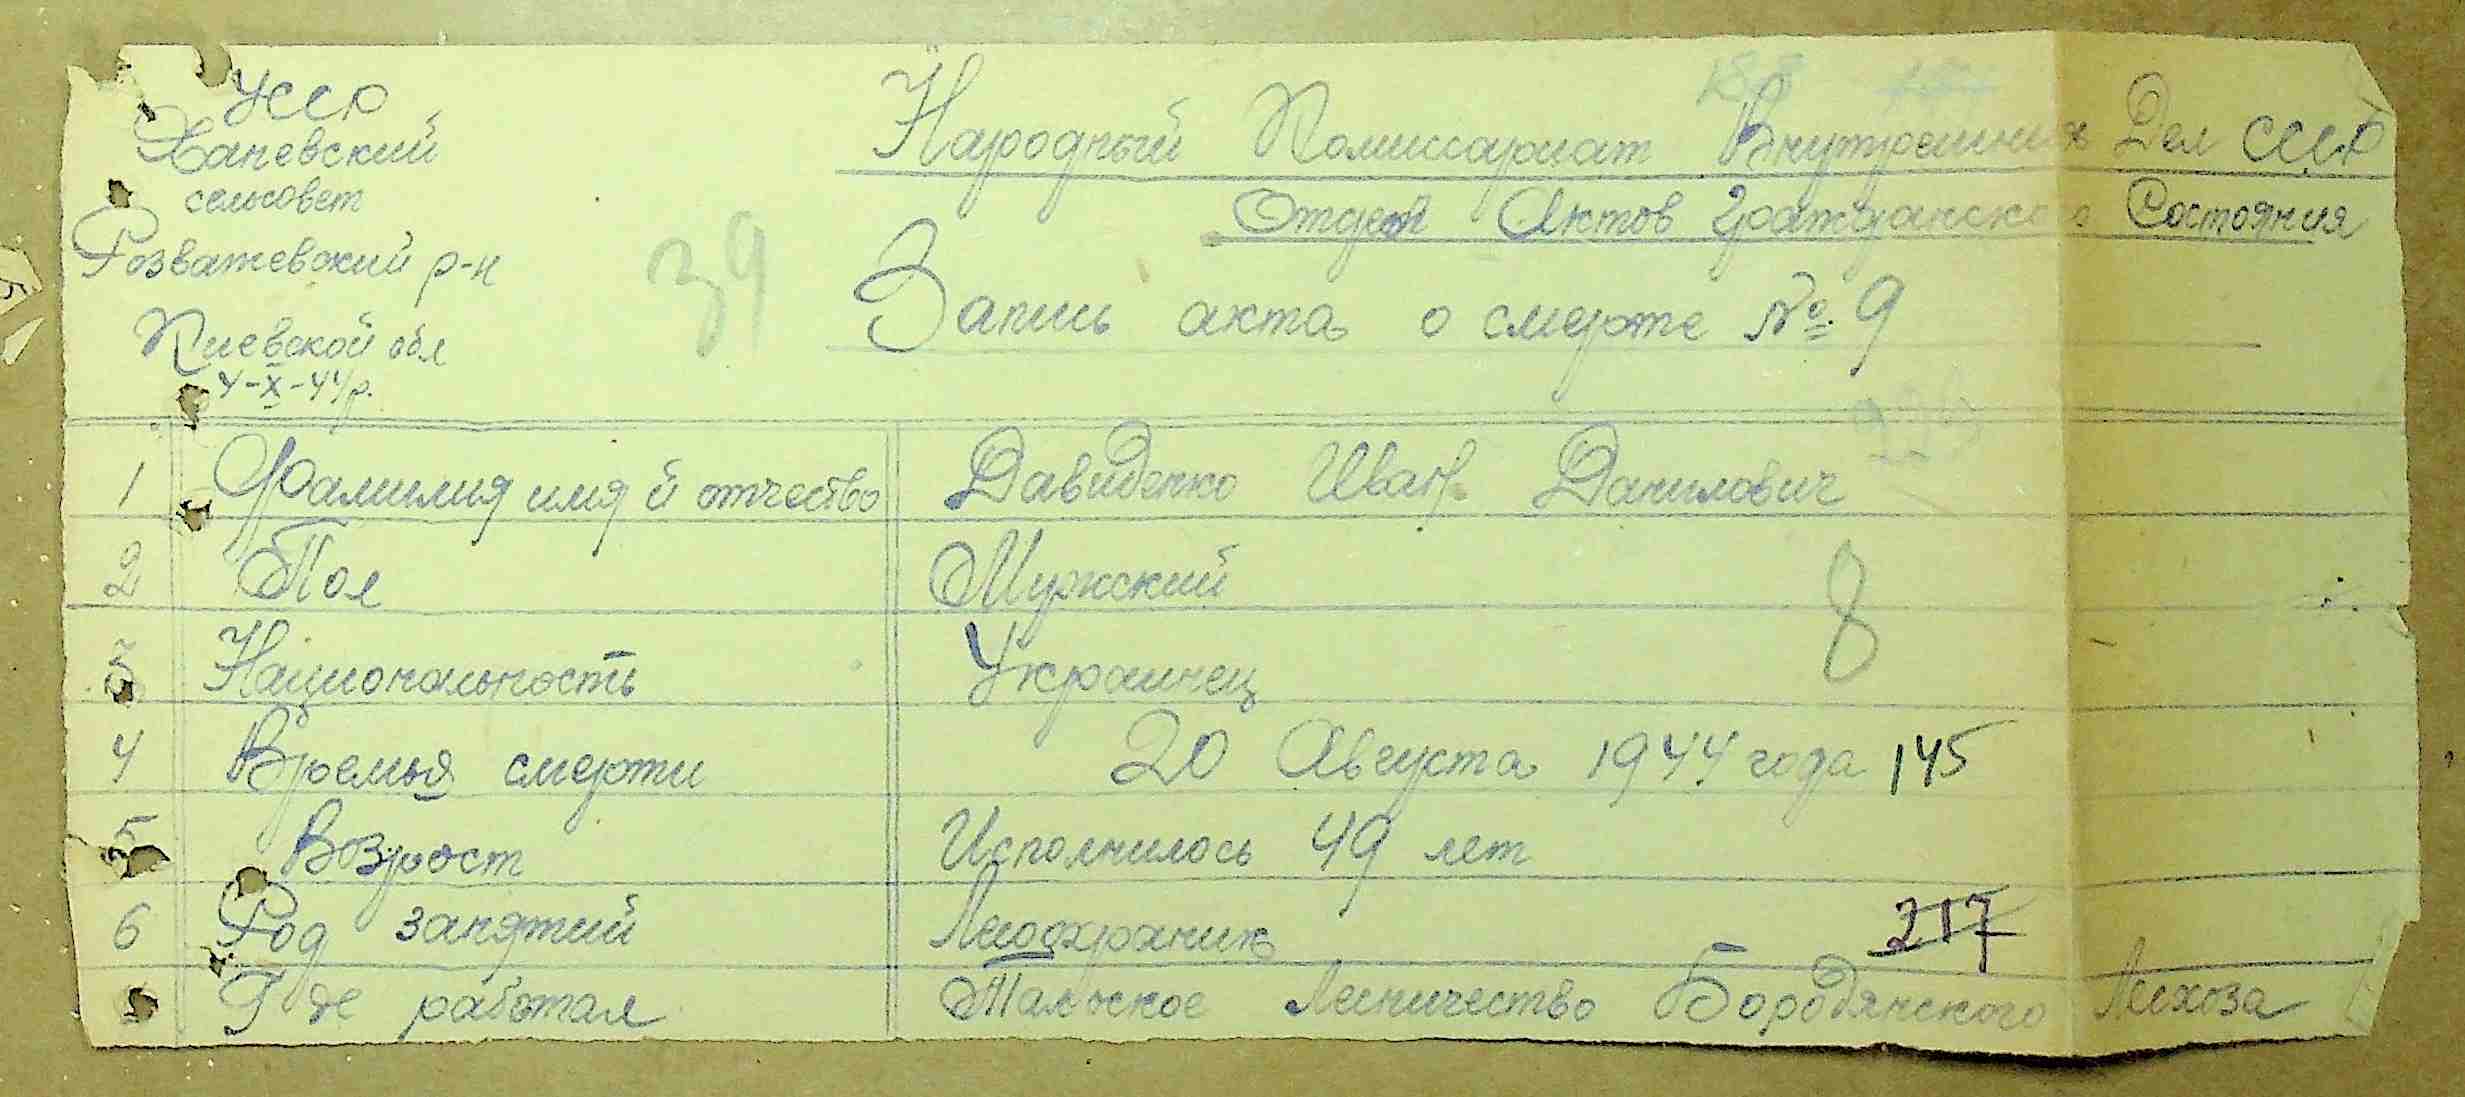 УССР
Ханевский
сельсовет
Розважевский р-н
Киевской обл
4-X-44р.
39
Народный Комиссариат Внутренних Дел СССР
Отдел Актов Гражданского Состояния
Запись акта о смерте № 9
1 Фамилия имя й отчество Давиденко Иван Данилович
2 Пол Мужский
8
3 Национальность Украинец
4 Времья смерти 20 Августа 1944 года 145
5 Возрост Исполнилось 49 лет
6 Род занятий Лесоохраник 217
Где работал Тальское Лесничество Бородянского Лесхоза